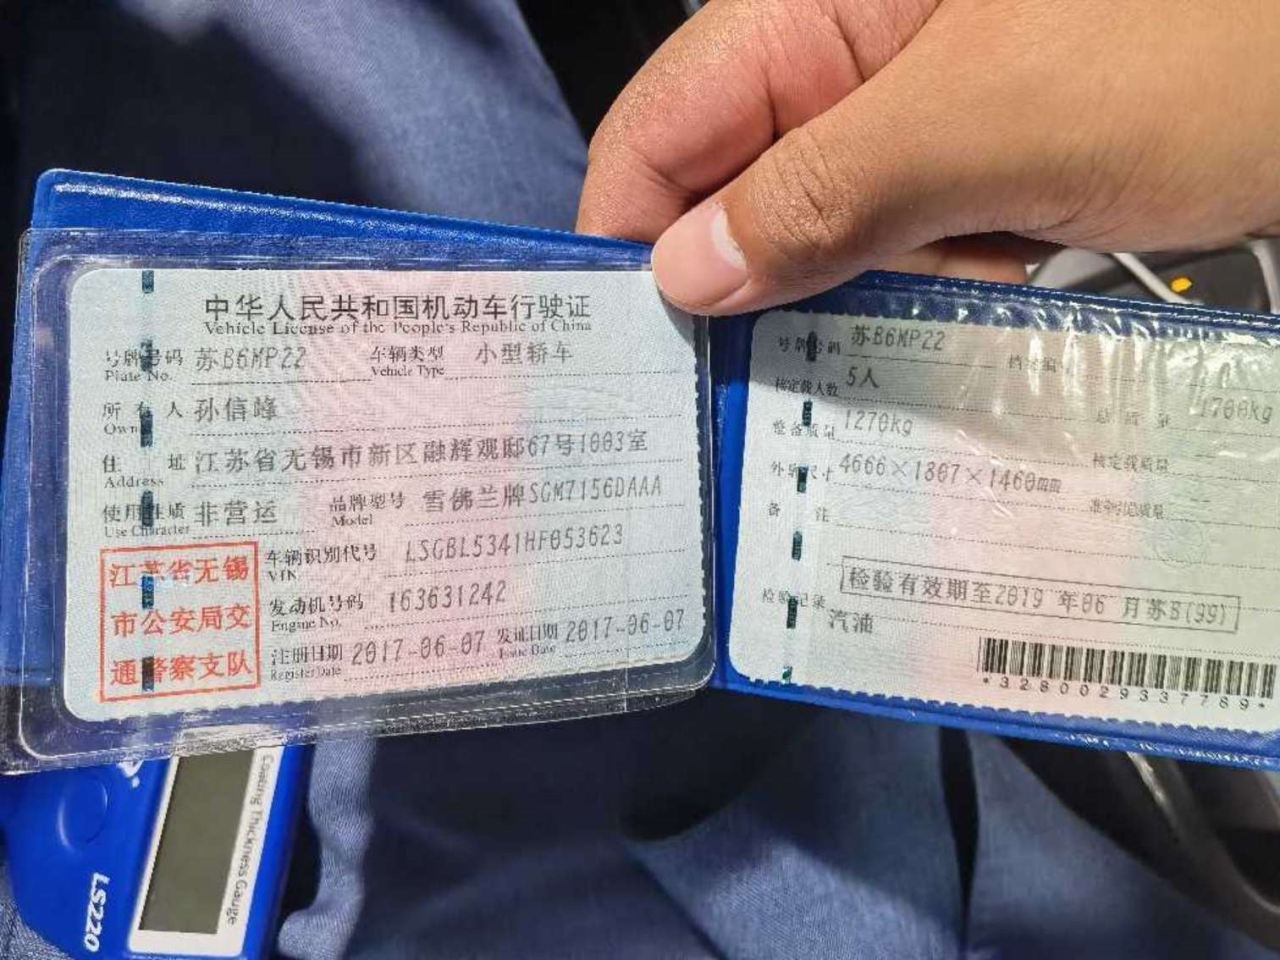 中华人民共和国机动车行驶证
Vehicle License of the People's Republic of China
号牌号码 苏B6MP22 车辆类型 小型轿车
Plate No. Vehicle Type
所有人 孙信峰
Owner
住址 江苏省无锡市新区融辉观邸67号1003室
Address
使用性质 非营运 品牌型号 雪佛兰牌SGM7156DAAA
Use Character Model
车辆识别代号 LSGBL5341HF053623
VIN
发动机号码 163631242
Engine No.
注册日期 2017-06-07 发证日期 2017-06-07
Register Date Issue Date
江苏省无锡
市公安局交
通警察支队
号牌号码 苏B6MP22 档案编号
核定载人数 5人 总质量 1700kg
整备质量 1270kg 核定载质量
外廓尺寸 4666×1807×1460mm 准牵引总质量
备注
检验有效期至2019 年06 月苏B(99)
检验记录
汽油
*3280029337789*
Coating Thickness Gauge
LS220